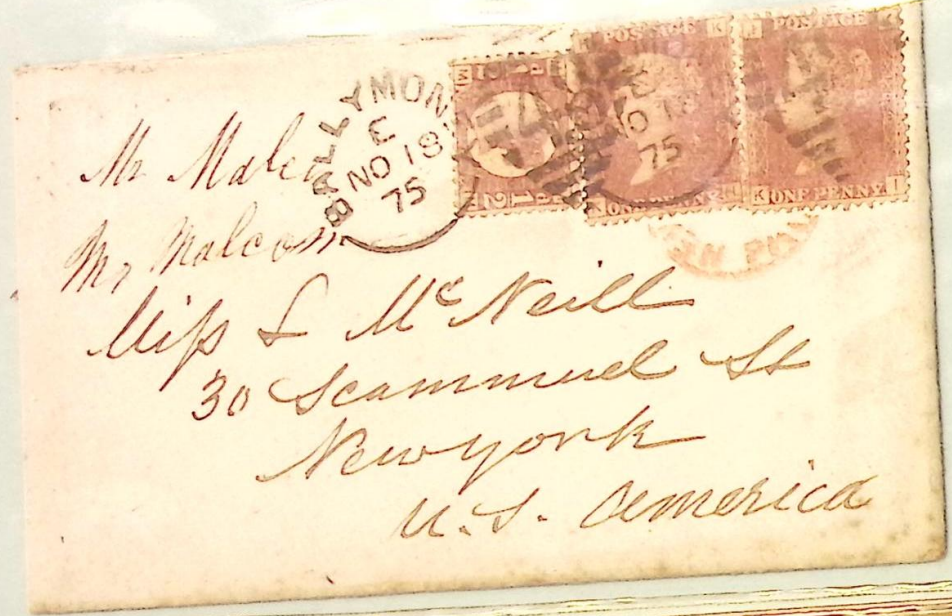 BALLYMON
E
NO 18
75
POSTAGE
ONE PENNY
POSTAGE
ONE PENNY
NO 18
75
Mr Malco
Mr Malcom
Miss S McNeill
30 Scammuel St
Newyork
U.S. America